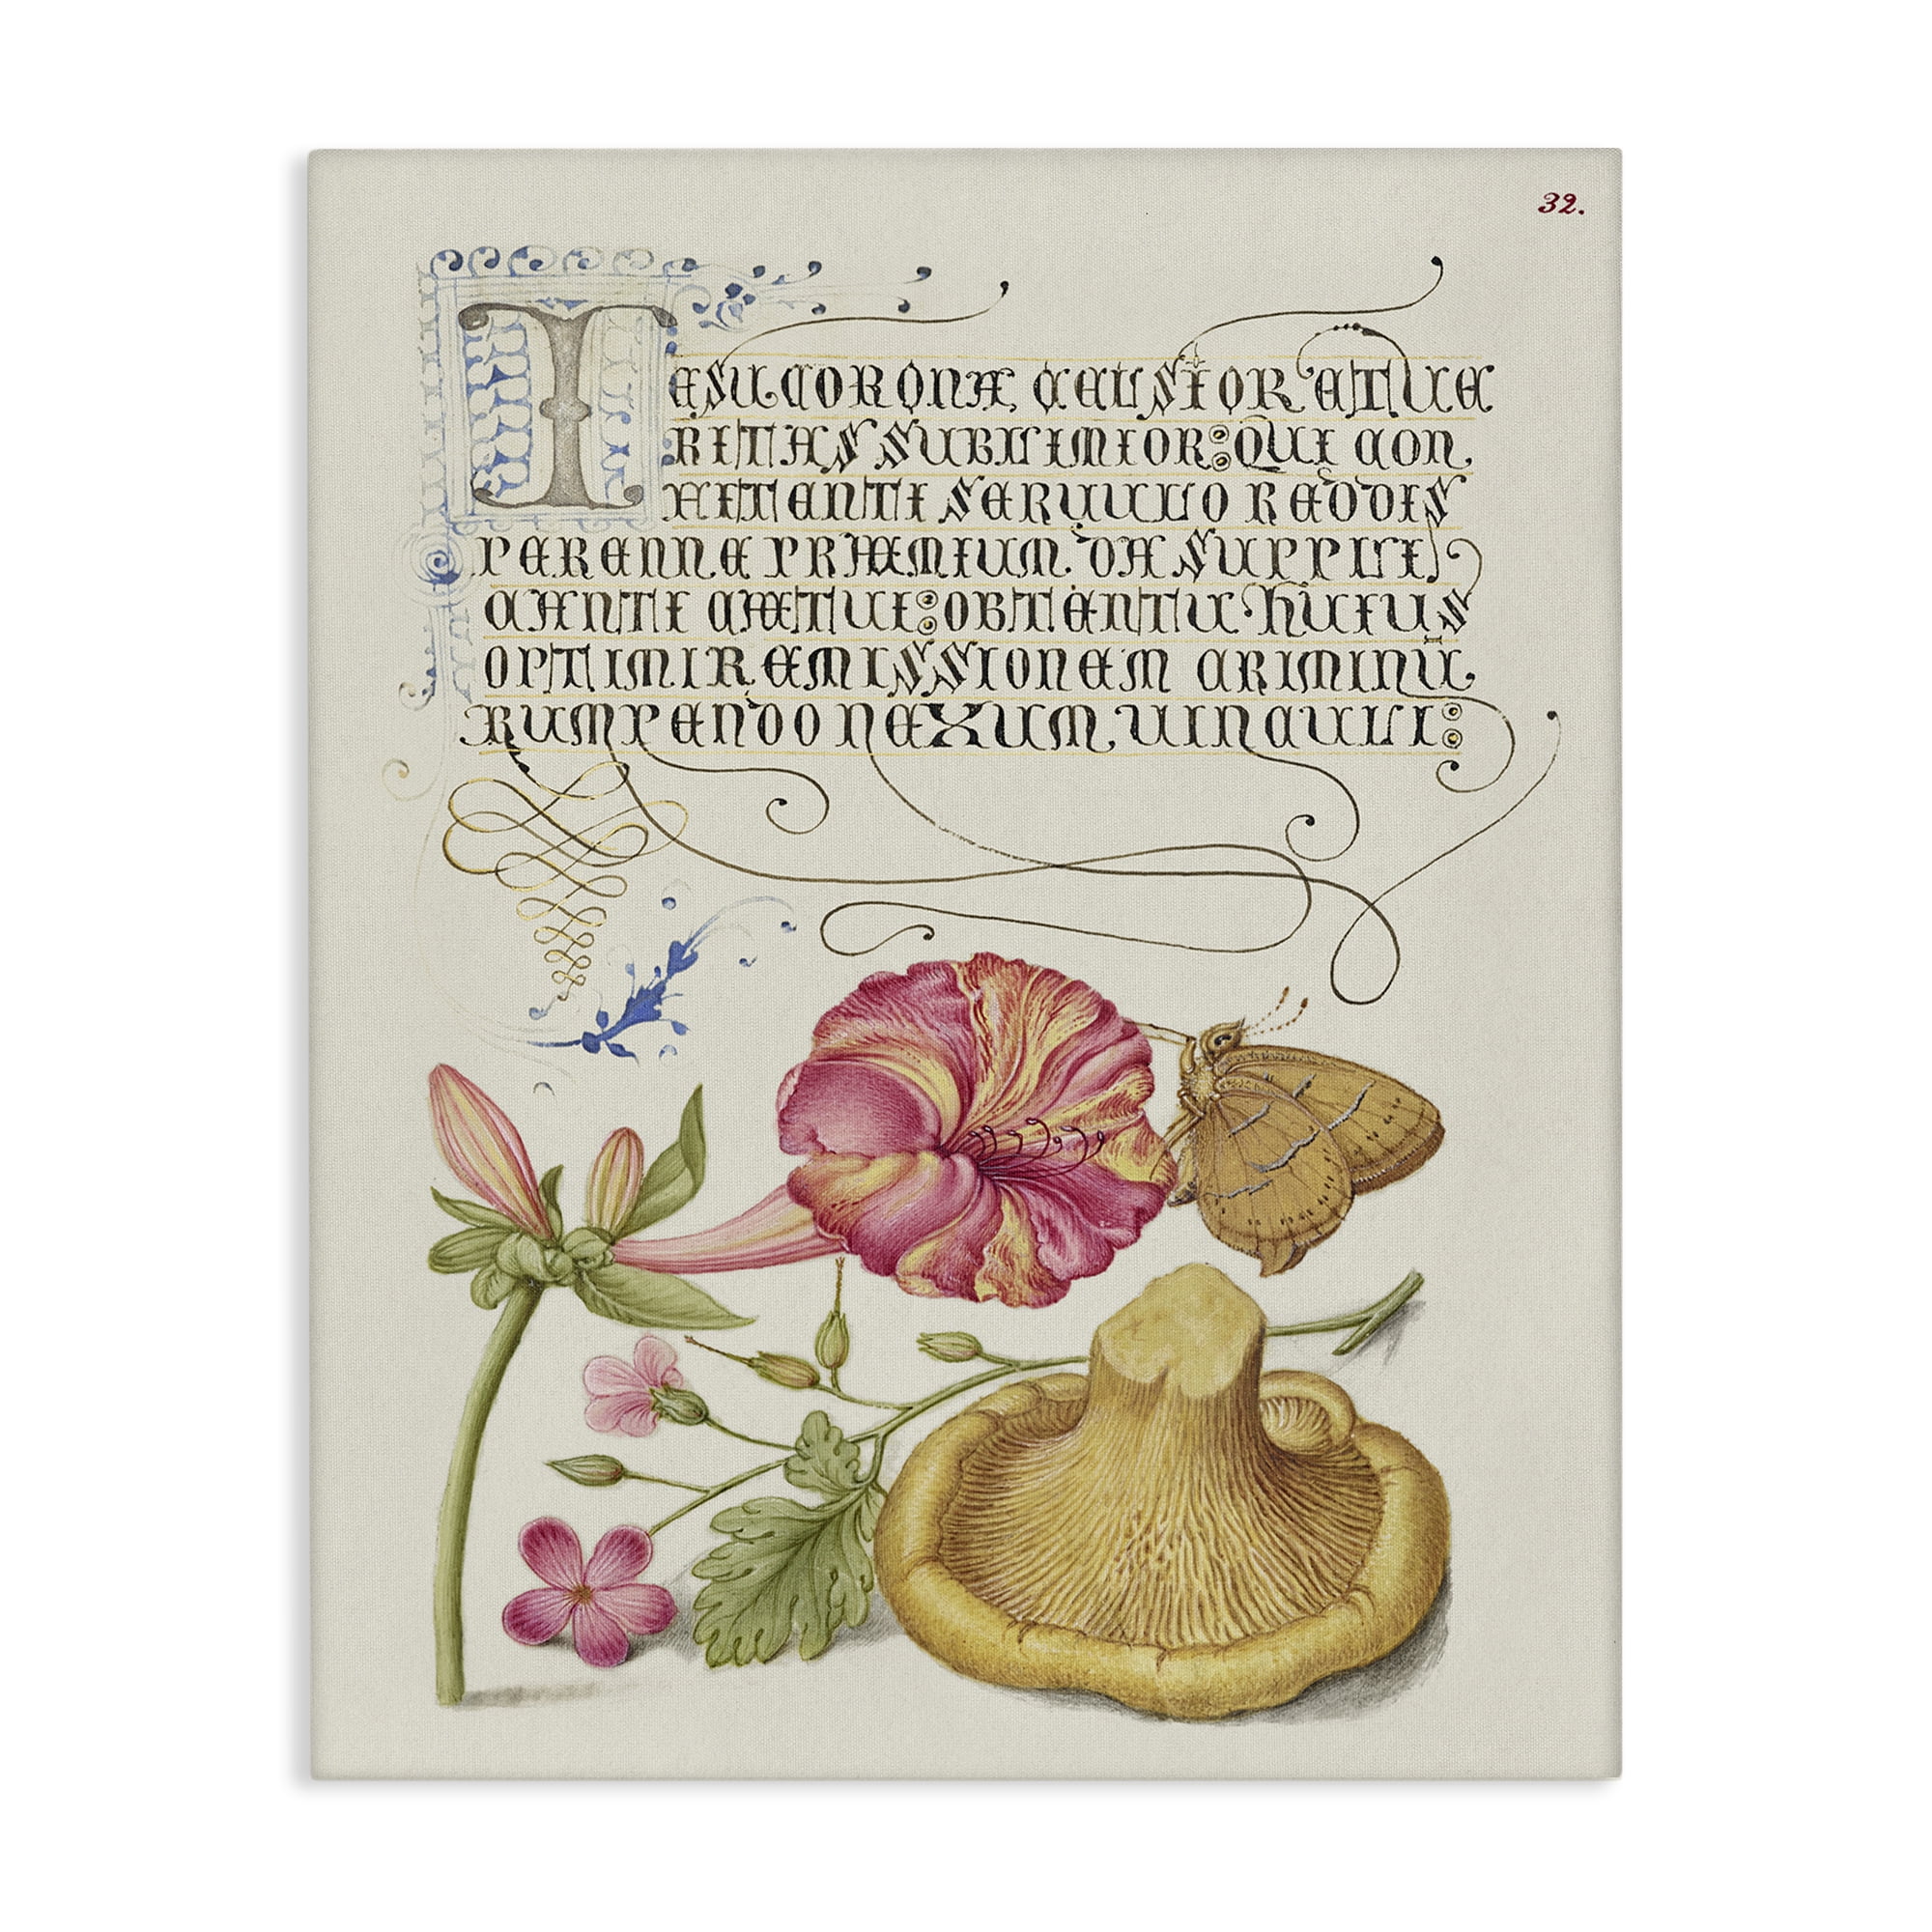 32.
IESU CORONA CELSIOR ET VE
RITAS SUBLIMIOR: QUI CON
FITENTI SERVULO REDDIS
PERENNE PRÆMIUM. DA SUPPLI
CANTI CÆTUI: OBTENTU HUIUS
OPTIMI REMISSIONEM CRIMINU
RUMPENDO NEXUM VINCULI: